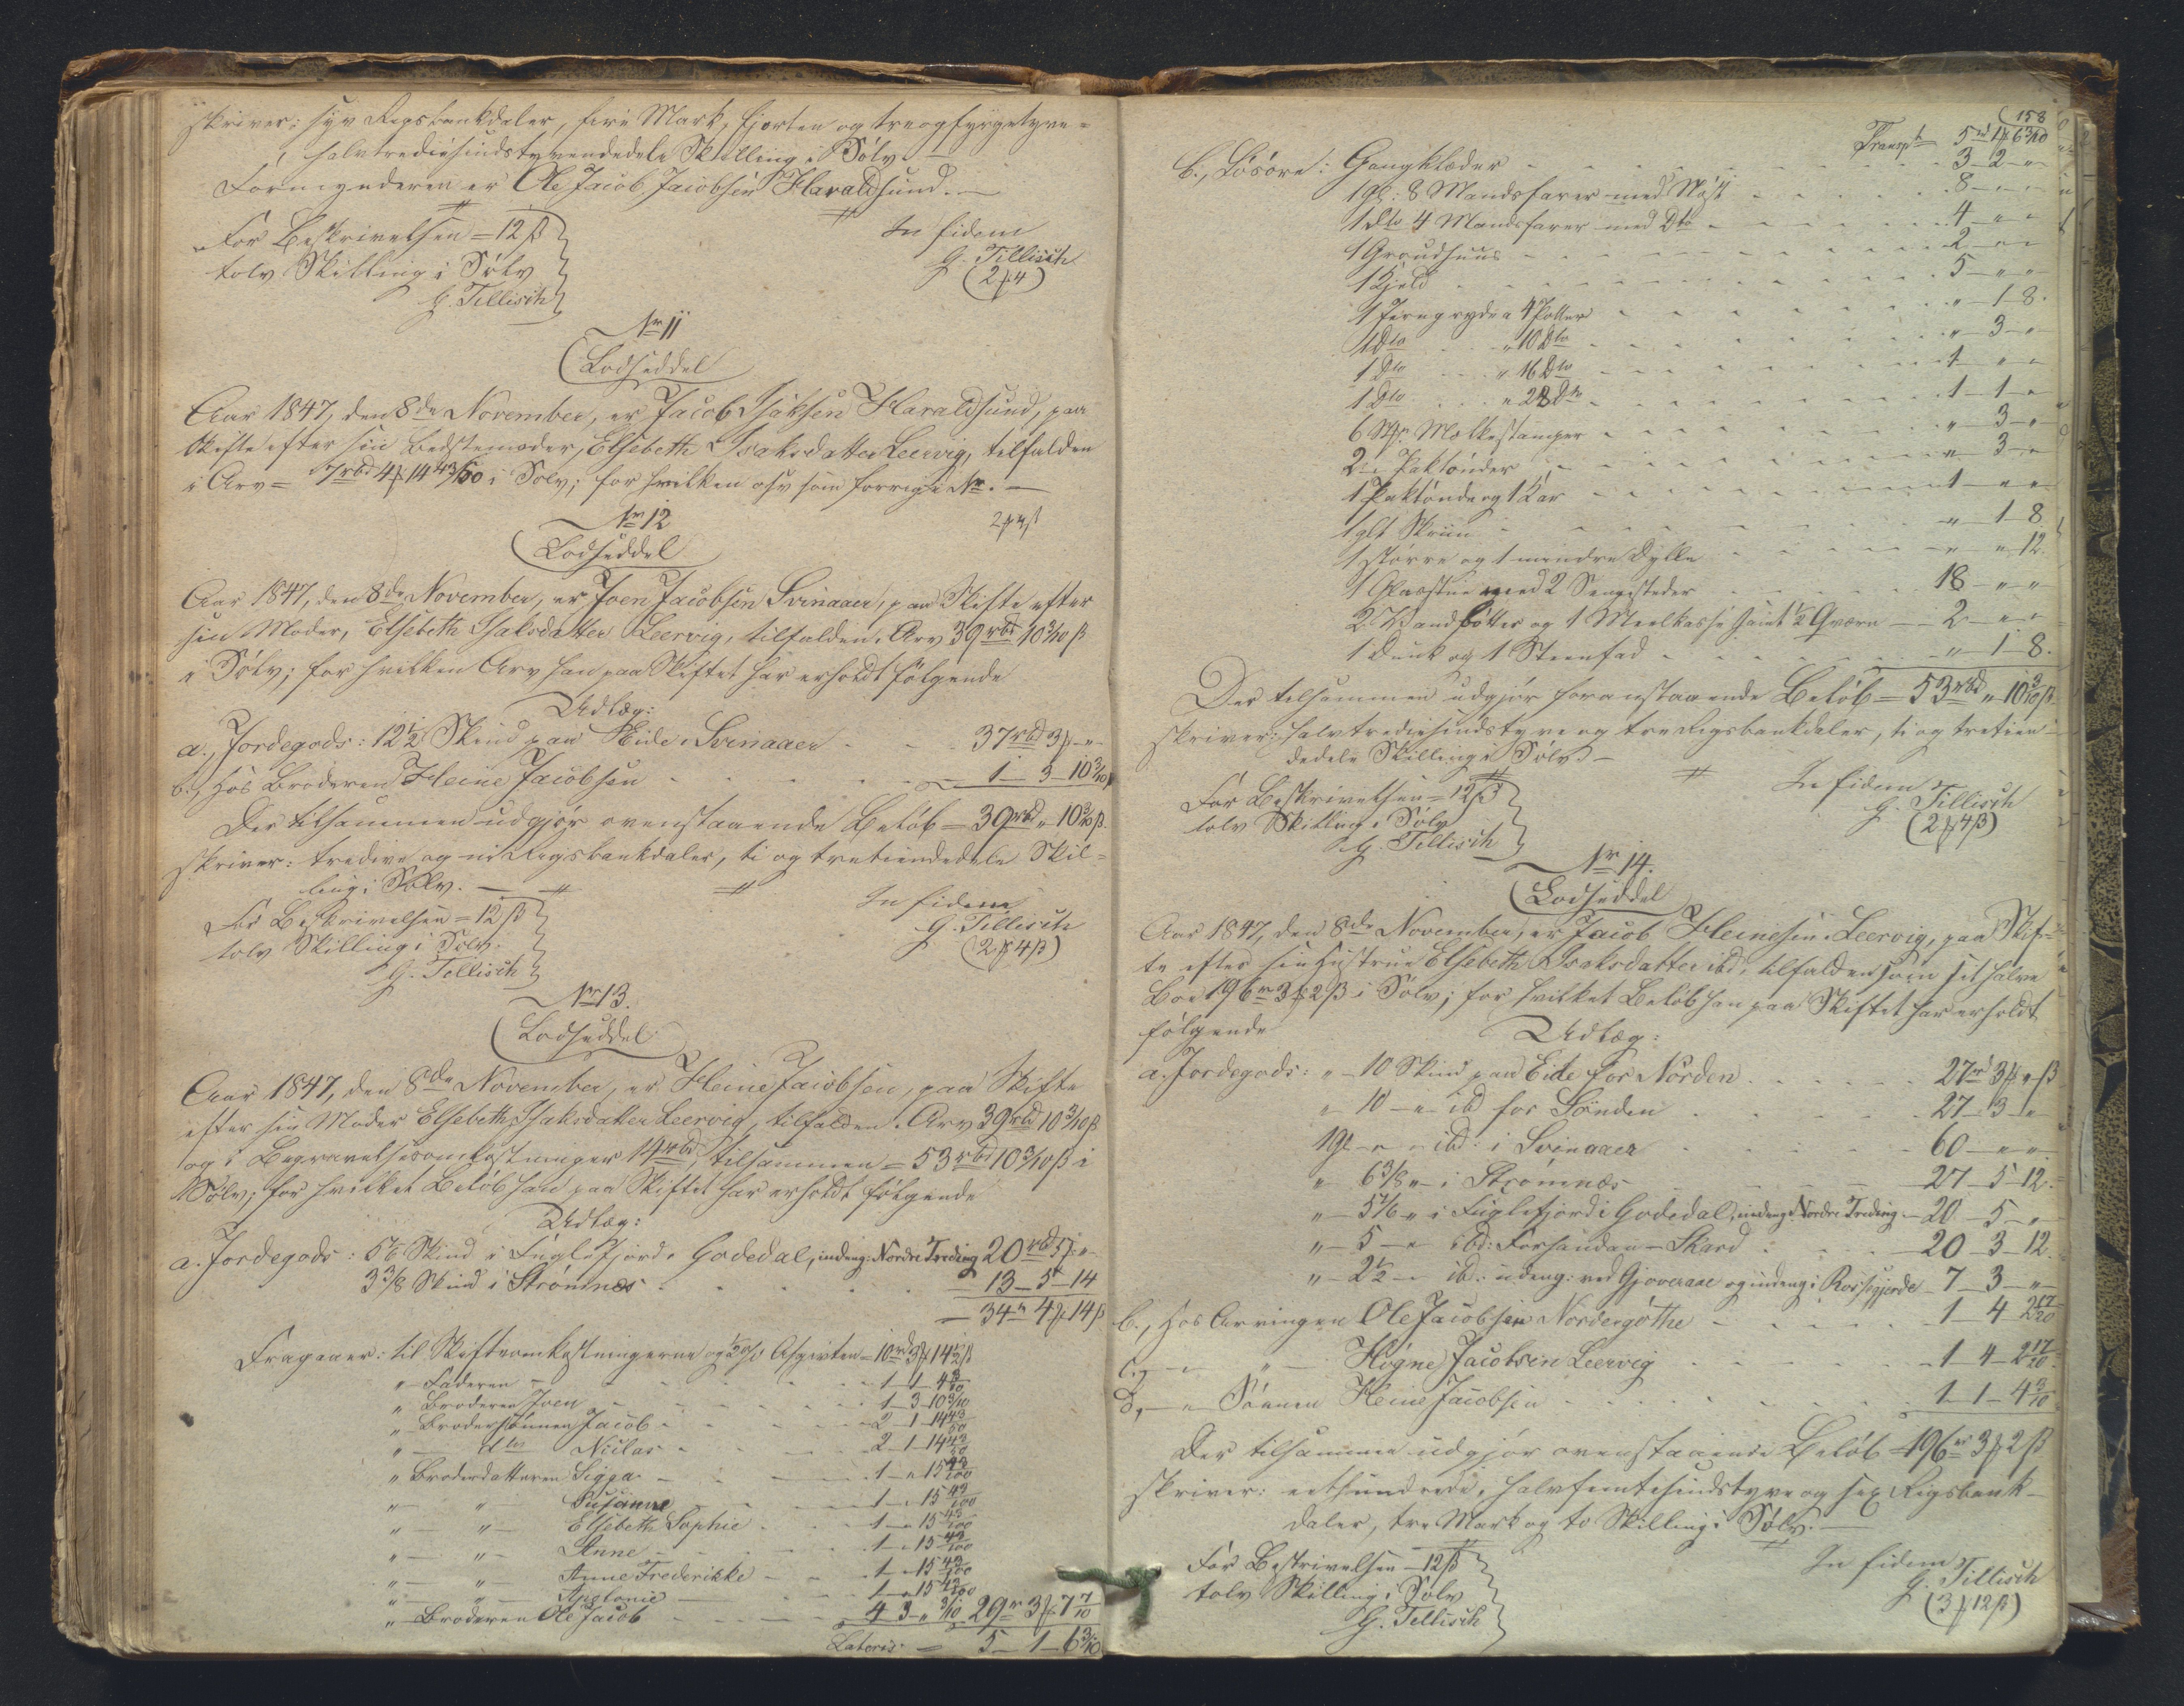 skriver: syv Rigsbankdaler, fire Mark, fjorten og treogfyrgetyve=
halvtrediesindstyvendedele Skilling i Sølv. —
Formynderen er Ole Jacob Jacobsen Haraldsund. —
For Beskrivelsen = 12 ß
tolv Skilling i Sølv
G. Tillisch
In fidem
G. Tillisch
(2 ₰ 4)
Nr 11
Lodseddel
Aar 1847, den 8de November, er Jacob Isaksen Haraldsund, paa
Skifte efter sin Bedstemoder, Elsebeth Isaksdatter Leervig, tilfalden
i Arv = 7rbd 4 ₰ 14 43/50 i Sølv; for hvilken osv som forrige Nr. —
2 ₰ 4 ß
Nr 12
Lodseddel
Aar 1847, den 8de November, er Joen Jacobsen Svinaaer, paa Skifte efter
sin Moder, Elsebeth Isaksdatter Leervig, tilfalden i Arv 39rbd 10 3/10 ß
i Sølv; for hvilken Arv han paa Skiftet har erholdt følgende
Udlæg:
a., Jordegods: 12 1/2 Skind paa Eide i Svinaaer - - 37rbd 3 ₰ - "
b., hos Broderen Heine Jacobsen - - - - 1 - 3 - 10 3/10
Der tilsammen udgjør ovenstaaende Beløb = 39rbd " 10 3/10 ß.
skriver: tredive og ni Rigsbankdaler, ti og tretiendedele Skil=
ling i Sølv. —
For Beskrivelsen = 12 ß
tolv Skilling i Sølv.
G. Tillisch
In fidem
G. Tillisch
(2 ₰ 4 ß)
Nr 13.
Lodseddel
Aar 1847, den 8de November, er Heine Jacobsen, paa Skifte
efter sin Moder Elsebeth Isaksdatter Leervig, tilfalden i Arv 39rbd 10 3/10 ß
og i Begravelsesomkostninger 14rbd, tilsammen = 53rbd 10 3/10 ß i
Sølv; for hvilket Beløb han paa Skiftet har erholdt følgende
Udlæg:
a. Jordegods: 5 1/6 Skind i Fuglefjord i Godedal, indeng: Nordre Treding 20rbd 5 ₰ "
3 3/8 Skind i Strømnæs - - - 13 - 5 - 14
34rbd 4 ₰ 14 ß
Fragaaer: til Skifteomkostningerne og 1/2 pCt Afgivten = 10rbd 3 ₰ 14 1/2 ß
" Faderen - - - 1 - 1 - 4 3/10
" Broderen Joen - - - 1 - 3 - 10 3/10
" Brodersønnen Jacob - - - 2 - 1 - 14 43/50
" — dto Niclas - - - 2 - 1 - 14 43/50
" Broderdatteren Sigga - - - 1 - " 15 43/100
" — " — Susanne - - - 1 - " 15 43/100
" — " — Elsebeth Sophie - - 1 - " 15 43/100
" — " — Anne - - - 1 - " 15 43/100
" — " — Anne Frederikke - - 1 - " 15 43/100
" — " — Apolonie - - - 1 - " 15 43/100
" Broderen Ole Jacob - - - 4 3 - " 3/10 29rd 3 ₰ 7 7/10
Lateris = 5 - 1 - 6 3/10
158
Transpt 5rd 1 ₰ 6 3/10
b., Løsøre: Gangklæder - - - 3 - 2 - "
1 Gl: 8 Mandsfarer med Nøst - - 8 - " - "
1 dto 4 Mandsfarer med Dto - - 4 - " - "
1 Groudhuus - - - 2 - " - "
1 Hjeld - - - 5 - " - "
1 Jerngryde a 4 Potter - - - " - 1 - 8.
1 Dto - - " 10 Dto - - - " - 3 - "
1 Dto - - " 16 Dto - - - 1 - " - "
1 Dto - - " 28 Dto - - - 1 - 1 - "
6 Stkr Melkestamper - - - " - 3 - "
2 Saktønder - - - " - 3 - "
1 Saktønde og 1 Kar - - - 1 - " - "
1 glt Skriin - - - " - 1 - 8
1 større og 1 mindre Dylle - - - " - " - 12.
1 Glasstue med 2 Sengesteder - - 18 - " - "
2 Vandbøtter og 1 Meelkasse samt 1/2 Qværn - 2 - " - "
1 Dunk og 1 Steenfad - - - " - 1 - 8.
Der tilsammen udgjør foranstaaende Beløb = 53rbd " 10 3/10 ß.
skriver: halvtrediesindstyve og tre Rigsbankdaler, ti og tretien=
dedele Skilling i Sølv. —
For Beskrivelsen = 12 ß
tolv Skilling i Sølv
G. Tillisch
In fidem
G. Tillisch
(2 ₰ 4 ß)
Nr 14.
Lodseddel
Aar 1847, den 8de November, er Jacob Heinesen i Leervig, paa Skif=
te efter sin Hustrue Elsebeth Isaksdatter ibd, tilfalden som sit halve
Boe 196rd 3 ₰ 2 ß i Sølv; for hvilket Beløb han paa Skiftet har erholdt
følgende
Udlæg:
a. Jordegods: " - 10 Skind paa Eide for Norden - - 27rd 3 ₰ " ß
" 10 - " ibd for Sønden - - 27 - 3 - "
1 Gl - " - ibd: i Svinaaer - - 60 - " - "
" 6 3/8 " - i Strømnæs - - 27 - 5 - 12.
" - 5 1/6 " i Fuglefjord i Godedal, indeng: Nordre Treding - 20 - 5 - "
" - 5 - " ibd: Forhandan - Skard - - 20 - 3 - 12.
" - 2 1/2 - " ibd: udeng: ved Gjoveraae og indeng i Rossgjerde - 7 - 3 - "
b., hos Arvingen Ole Jacobsen Nordergøthe - - 1 - 4 - 2 17/20
c., — " — Høgne Jacobsen Leervig - - 1 - 4 - 2 17/20
d., — " Sønnen Heine Jacobsen - - 1 - 1 - 4 3/10
Der tilsammen udgjør ovenstaaende Beløb = 196rd 3 ₰ 2 ß
skriver: eethundrede, halvfemtesindstyve og sex Rigsbank-
daler, tre Mark og to Skilling i Sølv. —
For Beskrivelsen - 12 ß
tolv Skilling i Sølv
G. Tillisch
In fidem
G. Tillisch
(3 ₰ 12 ß)